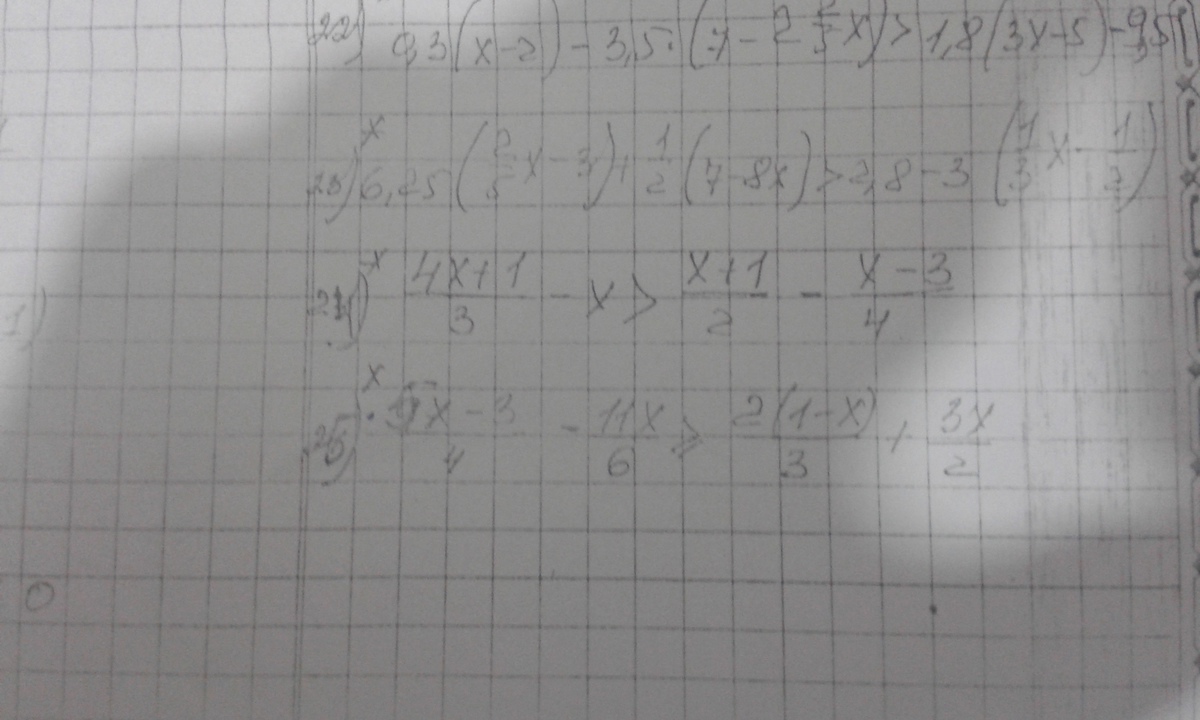 22) 9,3(x-2) - 3,5·(7 - 2 2/5 x) > 1,8(3x-5) - 9,5
x
23) 6,25(2/5 x - 3) + 1/2 (7-8x) > 2,8 - 3 (1/3 x - 1/2)
x
24) 4x+1/3 - x > x+1/2 - x-3/4
x
25) x-3/4 - 11x/6 ≥ 2(1-x)/3 + 3x/2
1)
0